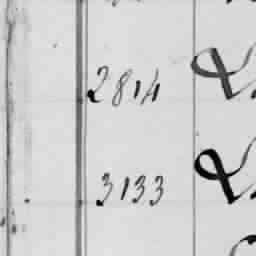 2814
3133